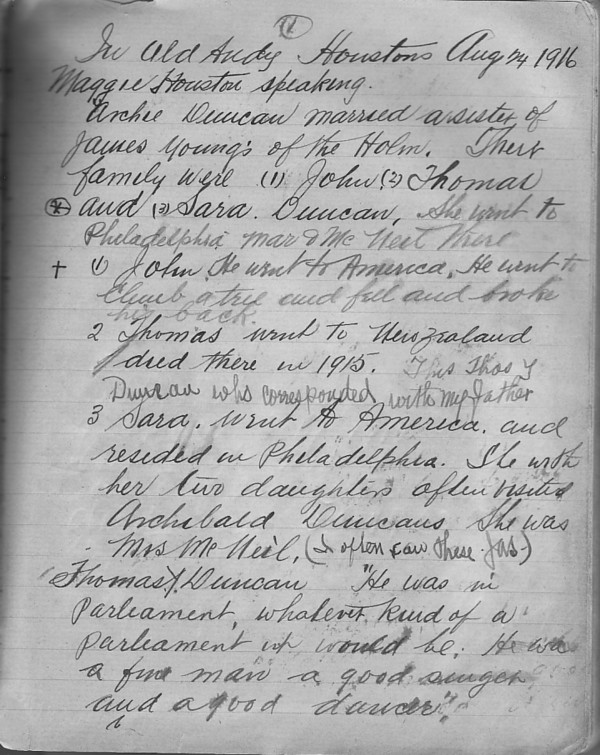 11
In Old Andy Houstons Aug 24 1916
Maggie Houston speaking.
Archie Duncan married a sister of
James Young's of the Holm. Their
family were (1) John (2) Thomas
and (3) Sara. Duncan, She went to
Philadelphia mar d Mc Neil there
† (1) John. He went to America. He went to
climb a tree and fell and broke
his back.
2 Thomas went to New Zealand
died there in 1915. This Thos Y
Duncan who corresponded with my father
3 Sara. went to America. and
resided in Philadelphia. She with
her two daughters often visited
Archibald Duncans She was
Mrs Mc Neil. (I often saw these Jas)
Thomas Y. Duncan "He was in
Parliament, whatever kind of a
parliament it would be. He was
a fine man a good singer
and a good dancer".